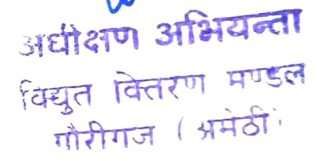 अधीक्षण अभियन्ता
विद्युत वितरण मण्डल
गौरीगज (अमेठी)